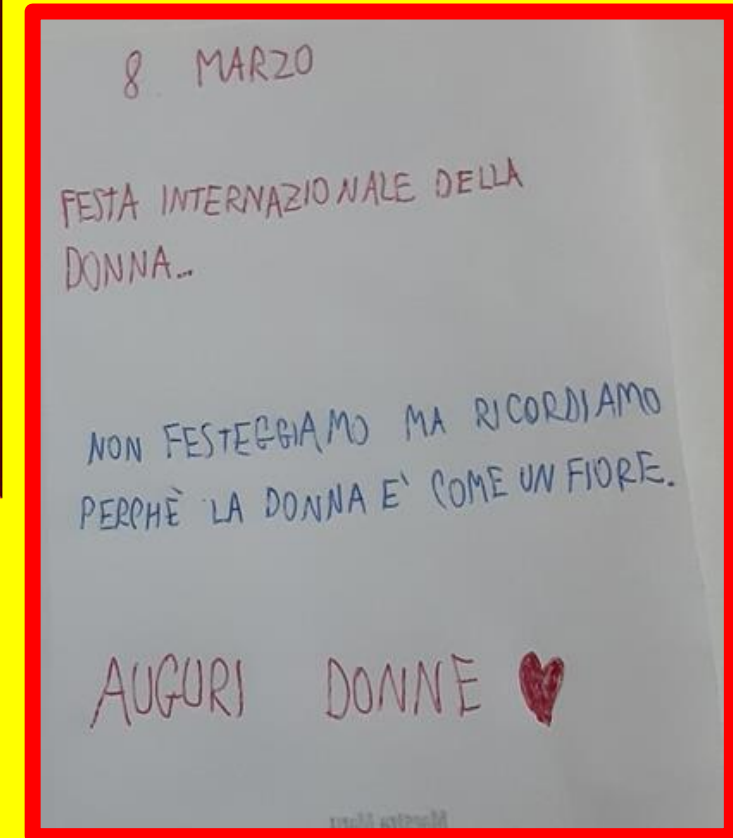 8 MARZO
FESTA INTERNAZIONALE DELLA
DONNA...
NON FESTEGGIAMO MA RICORDIAMO
PERCHÈ LA DONNA E' COME UN FIORE.
AUGURI DONNE ♥